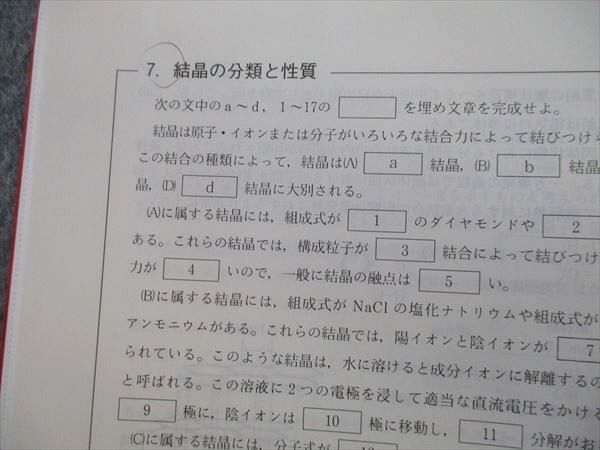 7. 結晶の分類と性質
次の文中のa～d，1～17の　　　を埋め文章を完成せよ。
結晶は原子・イオンまたは分子がいろいろな結合力によって結びつけら
この結合の種類によって，結晶は(A) a 結晶，(B) b 結晶
晶，(D) d 結晶に大別される。
(A)に属する結晶には，組成式が 1 のダイヤモンドや 2
ある。これらの結晶では，構成粒子が 3 結合によって結びつけ
力が 4 いので，一般に結晶の融点は 5 い。
(B)に属する結晶には，組成式が NaCl の塩化ナトリウムや組成式が
アンモニウムがある。これらの結晶では，陽イオンと陰イオンが 7
られている。このような結晶は，水に溶けると成分イオンに解離するの
と呼ばれる。この溶液に2つの電極を浸して適当な直流電圧をかける
9 極に，陰イオンは 10 極に移動し， 11 分解がお
(C)に属する結晶には，分子式が